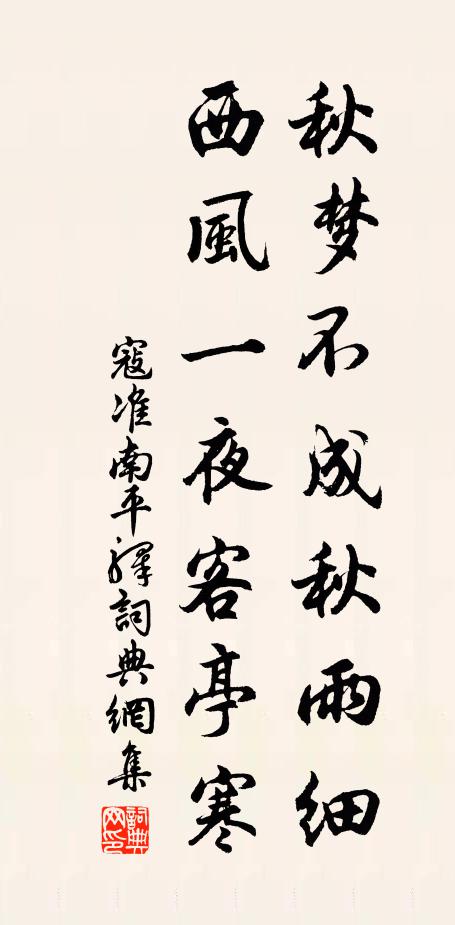 秋梦不成秋雨细
西風一夜客亭寒
寇准南平驛詞典網集
詞典網印